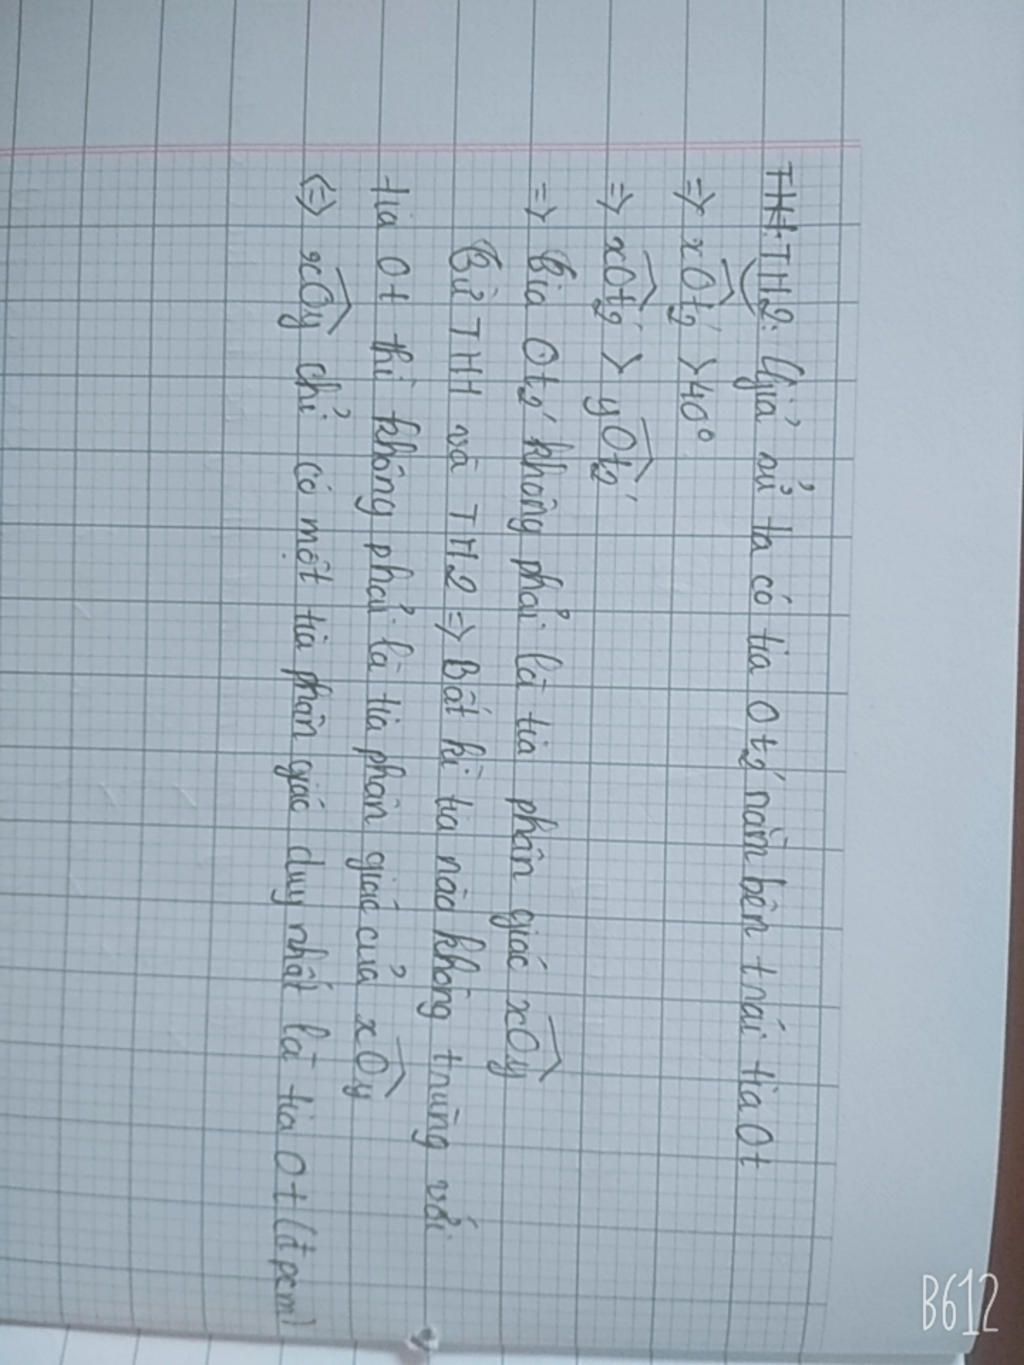 TH1: TH2: Giả sử ta có tia Ot₂' nằm bên trái tia Ot
=> xOt₂' > 40°
=> xOt₂' > yOt₂'
=> Tia Ot₂' không phải là tia phân giác xOy
Từ TH1 và TH2 => Bất kì tia nào không trùng với
tia Ot thì không phải là tia phân giác của xOy
<=> xOy chỉ có một tia phân giác duy nhất là tia Ot (đpcm)
B612